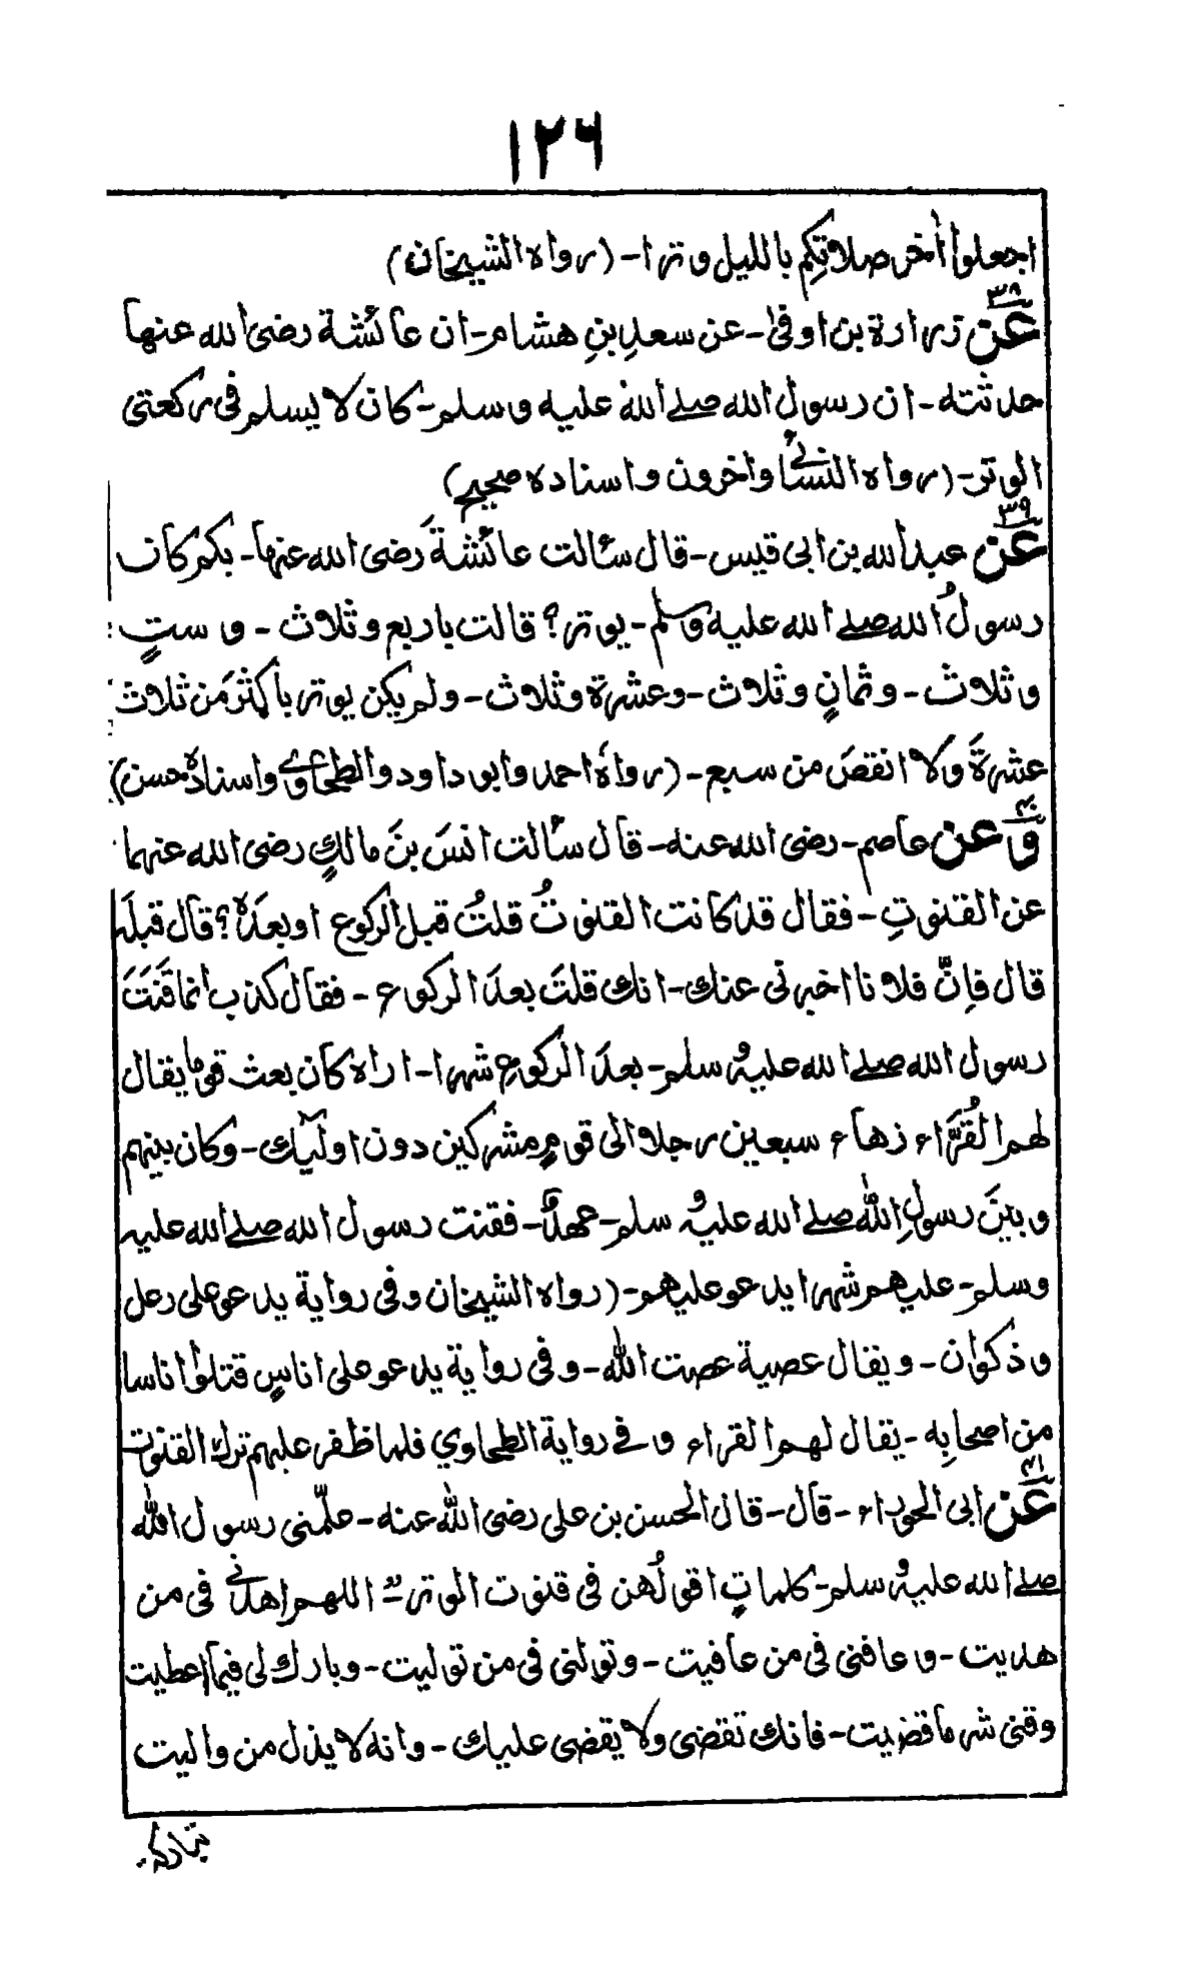 ١٢٦
اجعلوا أخر صلاتكِم بالليل وترا- (رواه الشيخان)
٣٨
عن زرارة بن اوفىٰ- عن سعدِ بنِ هشام- ان عائشة رضى الله عنها
حدثته- ان رسول الله صلے الله عليه وسلم- كان لا يسلم فى ركعتى
الوتر- (رواه النسائے واخرون واسناده صحيح)
٣٩
عن عبد الله بن ابى قيس- قال سألت عائشةَ رضى الله عنها- بكم كان
رسولُ الله صلے الله عليه وسلم- يوتر؟ قالت باربع وثلاث- و ستٍ
وثلاث- وثمانٍ وثلاث- وعشرة وثلاث- ولم يكن يوتر باكثرَ من ثلاث
عشرةَ ولا انقصَ من سبع- (رواهُ احمد وابو داود والطحاوے واسنادهٗ حسن)
٤٠
وعن عاصم- رضى الله عنه- قال سألت انسَ بنَ مالكٍ رضى الله عنهما
عن القنوتِ- فقال قد كانت القنوتُ قلتُ قبل الركوع او بعدَهٗ؟ قال قبلَه
قال فاِنّ فلانا اخبرنى عنك- انك قلتَ بعدَ الركوع- فقال كذب انما قَنَتَ
رسول الله صلے الله عليه وسلم- بعدَ الركوعِ شهرا- اراه كان بعث قوما يقال
لهم القُرَّاء زهاء سبعين رجلا الى قومٍ مشركين دون اولٓئك- وكان بينهم
وبينَ رسولِ اللّٰه صلے الله عليه وسلم- عهدٌ- فقنت رسول الله صلے الله عليه
وسلم- عليهم شهرا يدعو عليهم- (رواه الشيخان وفى رواية يدعو على رعل
وذكوان- ويقال عصية عصت اللّٰه- وفى رواية يدعو على اناسٍ قتلوا اناسا
من اصحابِه- يقال لهم القراء وفے رواية الطحاوي فلما ظفر عليهم ترك القنوت
٤١
عن ابى الحوراء- قال- قال الحسن بن على رضى اللّٰه عنه- علّمنى رسول اللّٰه
صلے الله عليه وسلم- كلماتٍ اقولُهن فى قنوت الوتر- اللهم اهدنے فى من
هديت- وعافنى فى من عافيت- وتولنى فى من توليت- وبارك لى فيما اعطيت
وقنى شر ما قضيت- فانك تقضى ولا يقضى عليك- وانه لا يذل من واليت